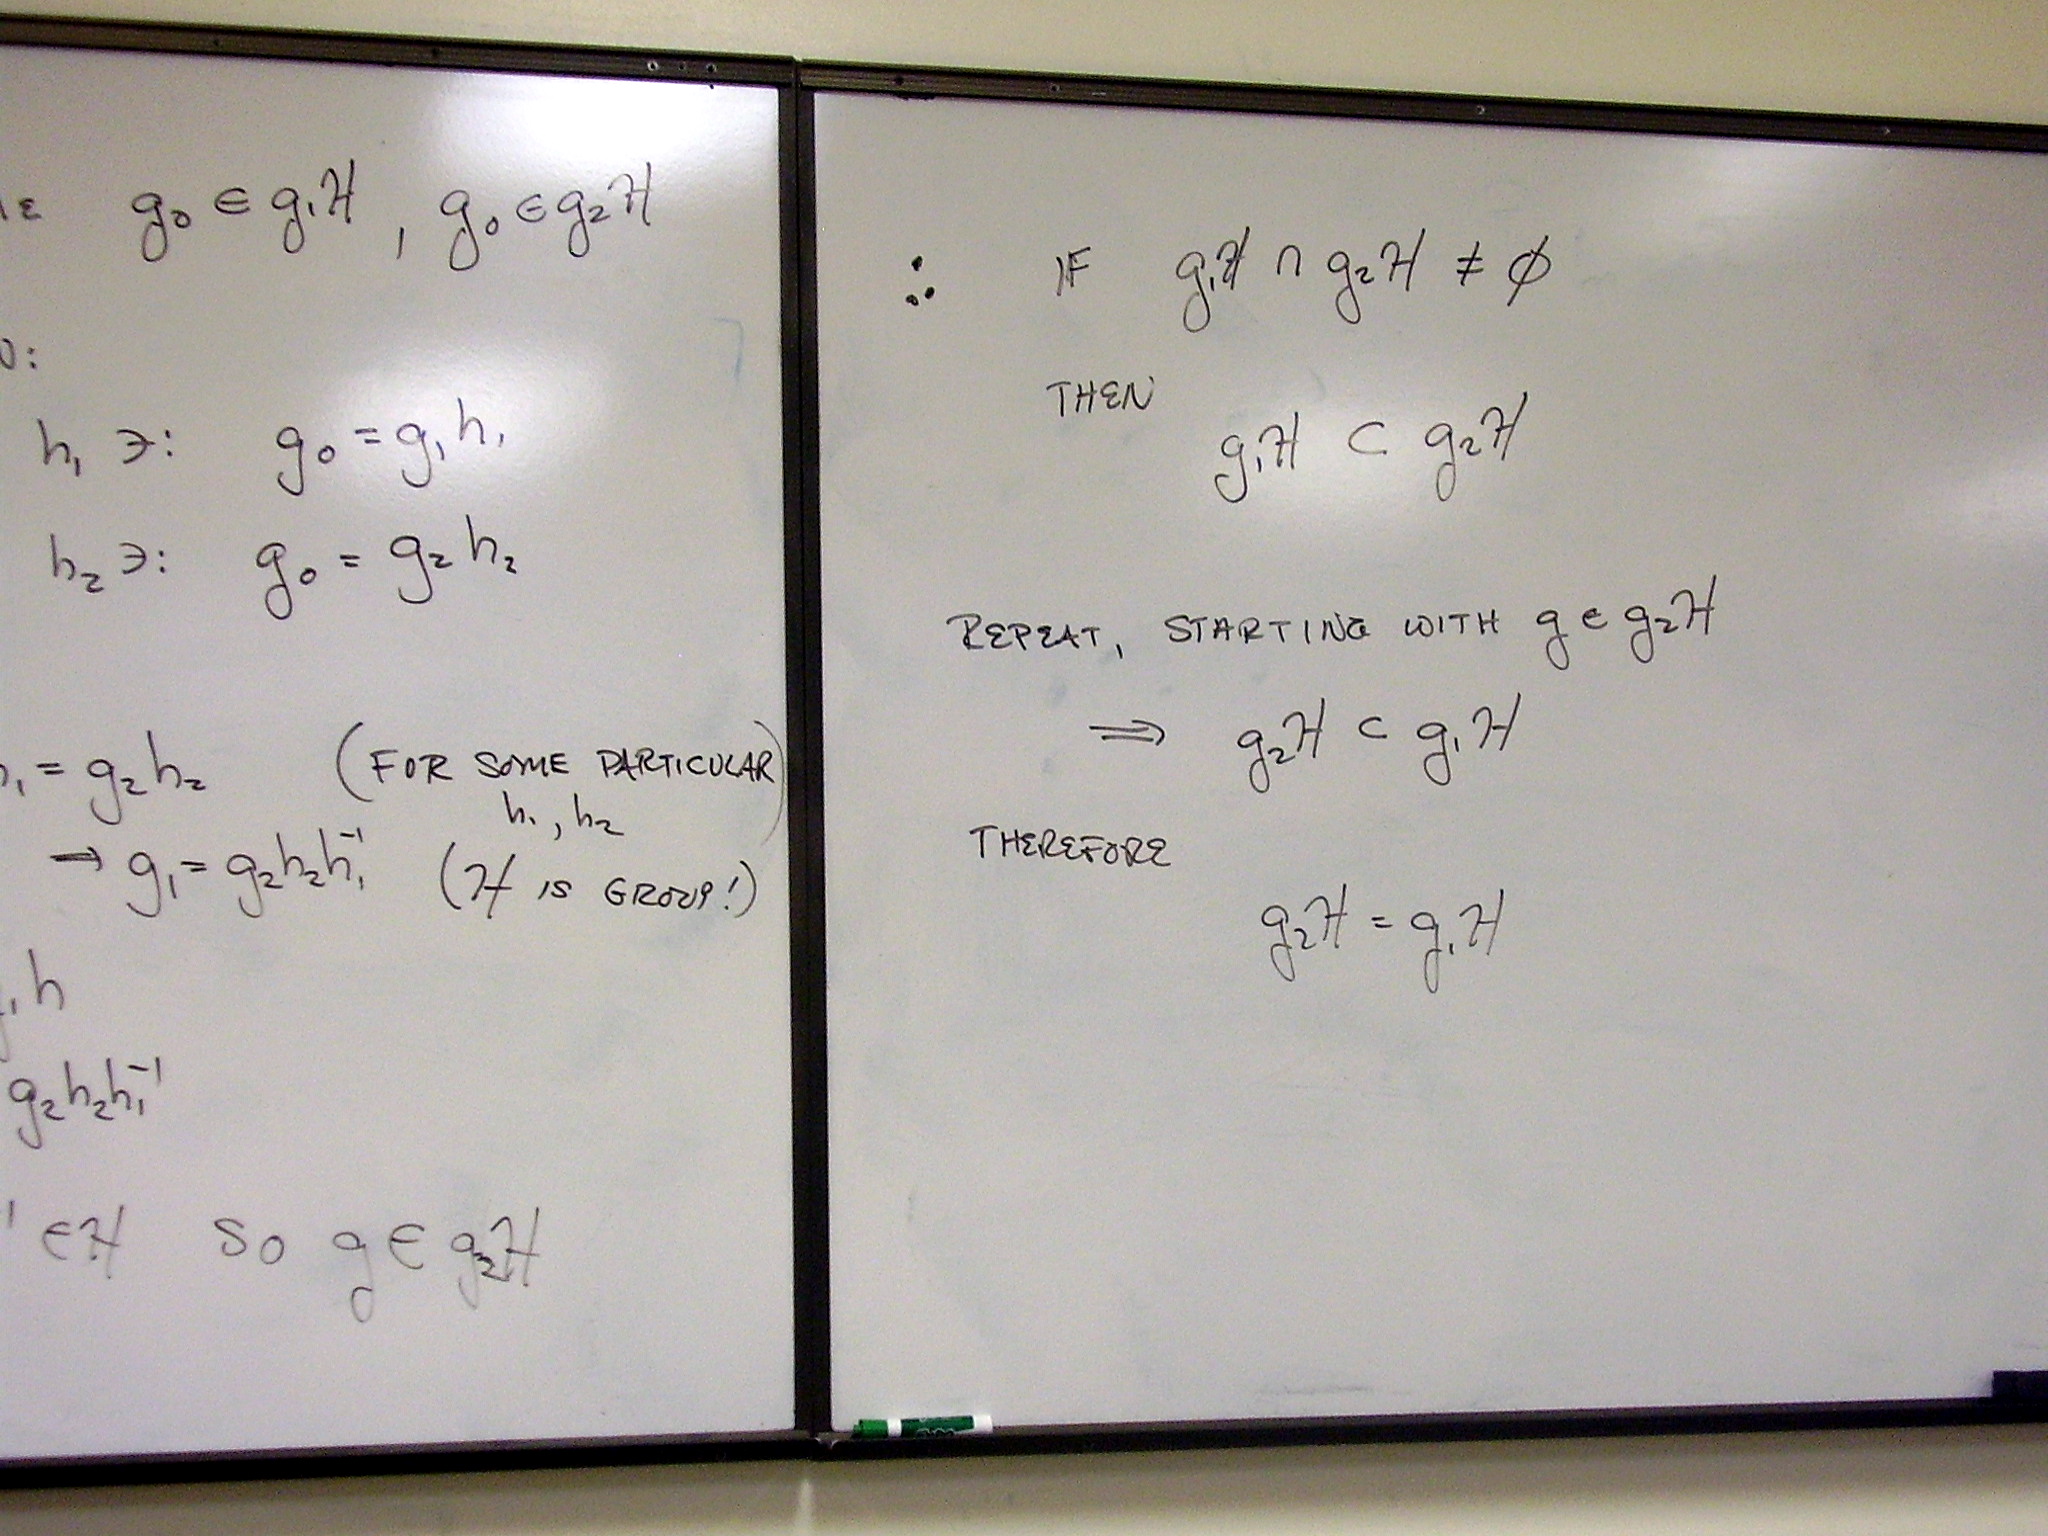 g₀ ∈ g₁H , g₀ ∈ g₂H
h₁ ∋: g₀ = g₁h₁
h₂ ∋: g₀ = g₂h₂
h₁ = g₂h₂ (FOR SOME PARTICULAR)
h₁, h₂
→ g₁ = g₂h₂h₁⁻¹ (H IS GROUP!)
g₁h
g₂h₂h₁⁻¹
⁻¹ ∈ H SO g ∈ g₂H
∴ IF g₁H ∩ g₂H ≠ ∅
THEN
g₁H ⊂ g₂H
REPEAT, STARTING WITH g ∈ g₂H
⇒ g₂H ⊂ g₁H
THEREFORE
g₂H = g₁H